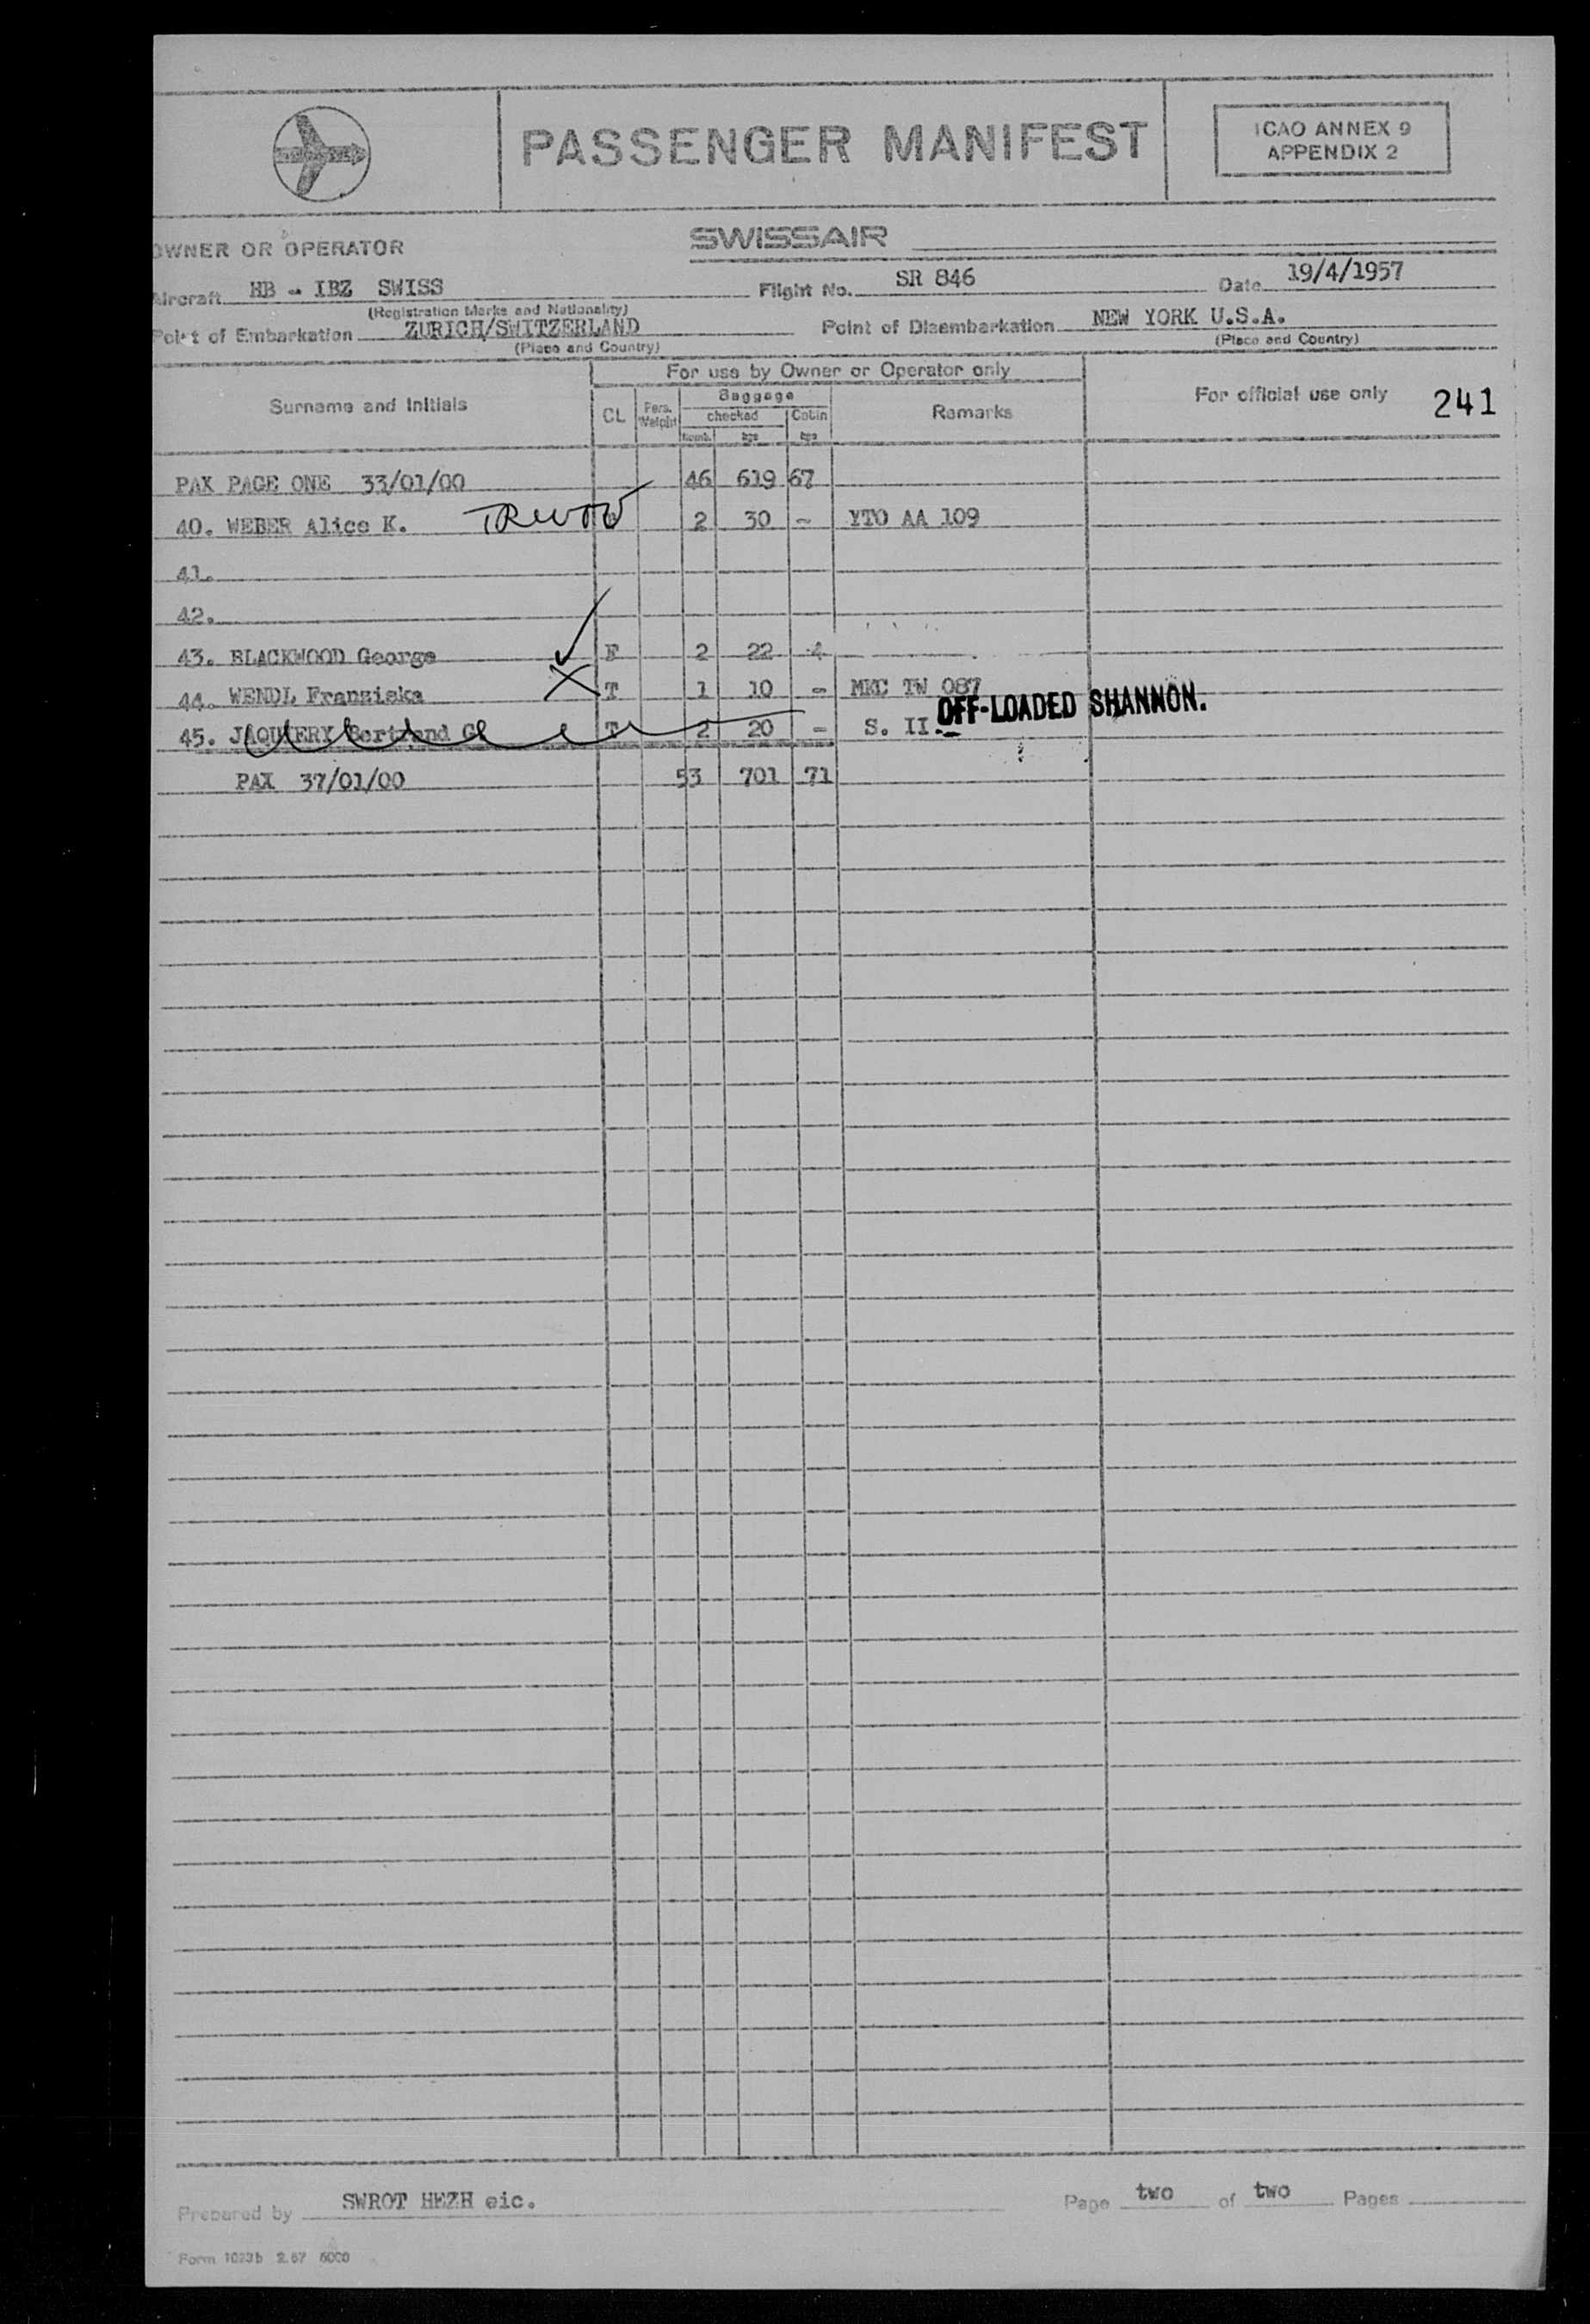 PASSENGER MANIFEST
ICAO ANNEX 9
APPENDIX 2
OWNER OR OPERATOR SWISSAIR
Aircraft HB - IBZ SWISS Flight No. SR 846 Date 19/4/1957
(Registration Marks and Nationality)
Point of Embarkation ZURICH/SWITZERLAND Point of Disembarkation NEW YORK U.S.A.
(Place and Country) (Place and Country)
For use by Owner or Operator only
Surname and Initials CL Pers. Weight Baggage Remarks For official use only 241
checked Cabin
Numb. kgs kgs
PAX PAGE ONE 33/01/00 46 619 67
40. WEBER Alice K. 2 30 - YTO AA 109
41.
42.
43. BLACKWOOD George F 2 22 4
44. WENDL Franziska T 1 10 - MKC TW 087
OFF-LOADED SHANNON.
45. JAQUIERY Bertrand G T 2 20 - S. II.
PAX 37/01/00 53 701 71
Prepared by SWROT HEZH eic. Page two of two Pages
Form 1023b 2.57 5000